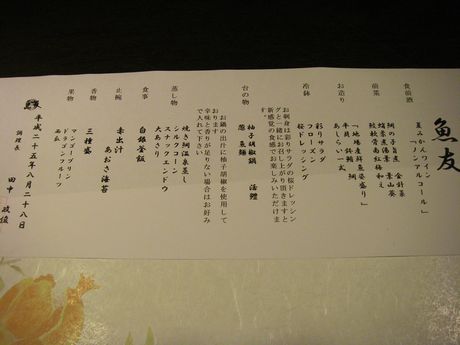 魚友
食前酒
夏みかんワイン
「ノンアルコール」
前菜
鯛の子旨煮
お造り
「地場産鮮魚姿盛り」
平貝 鉢鮪 鯛
あしらい一式
冷鉢
彩りサラダ
フローズン
桜ドレッシング
お刺身は彩りサラダの桜ドレッシン
グと一緒にお召し上がり頂きますと
新感覚の食感でお楽しみいただけま
す。
台の物
柚子胡椒鍋 活鱧
葱 魚麺
お鍋の出汁に柚子胡椒を使用して
おります
辛味と香りが足りない場合はお好み
で入れて下さい
蒸し物
焼き鯛温泉蒸し
シルクコーン
スナックエンドウ
大あさり
食事
白銀釜飯
止椀
赤出汁
あおさ海苔
香物
三種盛
果物
マンゴープリン
ドラゴンフルーツ
西瓜
平成二十五年八月二十八日
調理長
田中